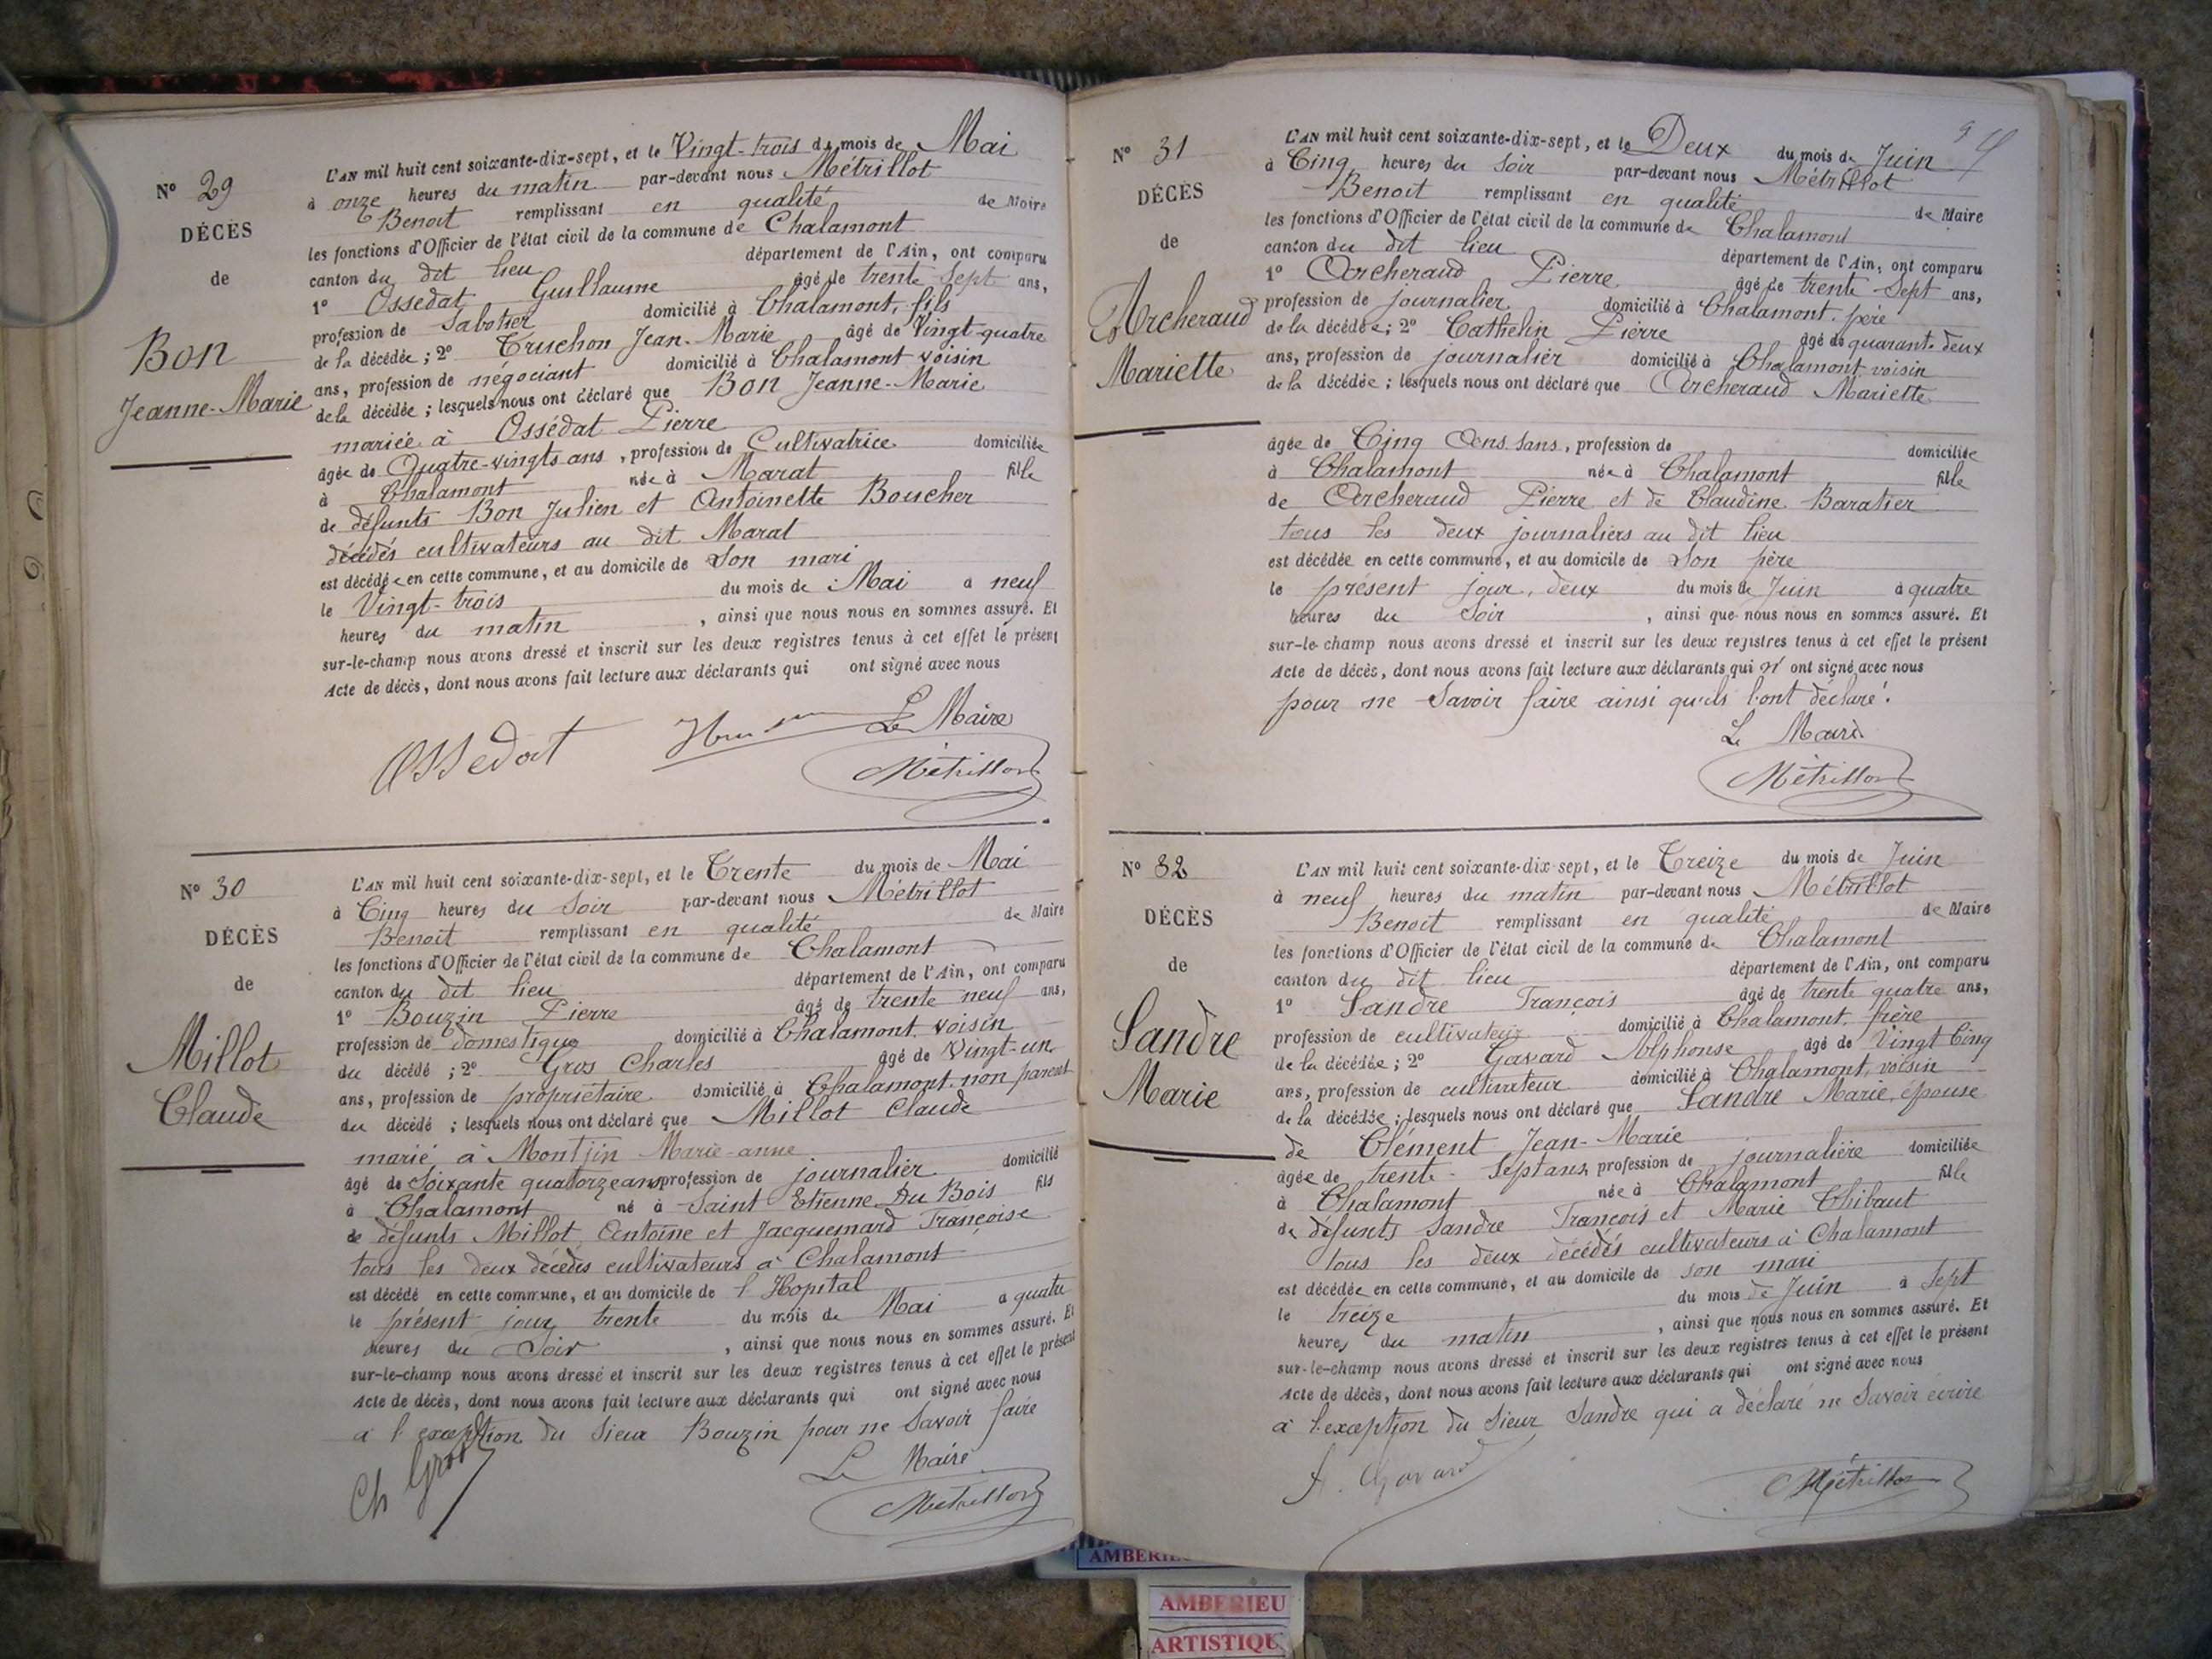 N° 29
DÉCÈS
de
Bon
Jeanne-Marie
L'AN mil huit cent soixante-dix-sept, et le Vingt-trois du mois de Mai
à onze heures du matin par-devant nous Métrillot
Benoit remplissant en qualité de Maire
les fonctions d'Officier de l'état civil de la commune de Chalamont
canton du dit lieu département de l'Ain, ont comparu
1° Ossedat Guillaume âgé de trente Sept ans,
profession de Sabotier domicilié à Chalamont, fils
de la décédée ; 2° Truchon Jean-Marie âgé de Vingt-quatre
ans, profession de négociant domicilié à Chalamont voisin
de la décédée ; lesquels nous ont déclaré que Bon Jeanne-Marie
mariée à Ossédat Pierre
âgée de Quatre-vingts-ans, profession de Cultivatrice domiciliée
à Chalamont née à Marat fille
de défunts Bon Julien et Antoinette Boucher
décédés cultivateurs au dit Marat
est décédée en cette commune, et au domicile de Son mari
le Vingt-trois du mois de Mai a neuf
heures du matin , ainsi que nous nous en sommes assuré. Et
sur-le-champ nous avons dressé et inscrit sur les deux registres tenus à cet effet le présent
Acte de décès, dont nous avons fait lecture aux déclarants qui ont signé avec nous
Le Maire
Ossedat
Métrillot
N° 30
DÉCÈS
de
Millot
Claude
L'AN mil huit cent soixante-dix-sept, et le Trente du mois de Mai
à Cinq heures du Soir par-devant nous Métrillot
Benoit remplissant en qualité de Maire
les fonctions d'Officier de l'état civil de la commune de Chalamont
canton du dit lieu département de l'Ain, ont comparu
1° Bouzin Pierre âgé de trente neuf ans,
profession de domestique domicilié à Chalamont voisin
du décédé ; 2° Gros Charles âgé de Vingt-un
ans, profession de propriétaire domicilié à Chalamont non parent
du décédé ; lesquels nous ont déclaré que Millot Claude
marié à Montjin Marie-anne
âgé de Soixante quatorze ans profession de journalier domicilié
à Chalamont né à Saint Etienne Du Bois fils
de défunts Millot Antoine et Jacquemard Françoise
tous les deux décédés cultivateurs à Chalamont
est décédé en cette commune, et au domicile de l'Hopital
le présent jour trente du mois de Mai a quatre
heures du Soir , ainsi que nous nous en sommes assuré. Et
sur-le-champ nous avons dressé et inscrit sur les deux registres tenus à cet effet le présent
Acte de décès, dont nous avons fait lecture aux déclarants qui ont signé avec nous
a l'exception du Sieur Bouzin pour ne Savoir faire
Le Maire
Ch Gros
Métrillot
N° 31
DÉCÈS
de
Archeraud
Mariette
L'AN mil huit cent soixante-dix-sept, et le Deux du mois de Juin
à Cinq heures du Soir par-devant nous Métrillot
Benoit remplissant en qualité de Maire
les fonctions d'Officier de l'état civil de la commune de Chalamont
canton du dit lieu département de l'Ain, ont comparu
1° Archeraud Pierre âgé de trente-Sept ans,
profession de journalier domicilié à Chalamont. père
de la décédée ; 2° Cathelin Pierre âgé de quarant-deux
ans, profession de journalier domicilié à Chalamont voisin
de la décédée ; lesquels nous ont déclaré que Archeraud Mariette
âgée de Cinq Ans. Sans, profession de domiciliée
à Chalamont née à Chalamont fille
de Archeraud Pierre et de Claudine Baratier
tous les deux journaliers au dit lieu
est décédée en cette commune, et au domicile de Son père
le présent jour, deux du mois de Juin à quatre
heures du Soir , ainsi que nous nous en sommes assuré. Et
sur-le-champ nous avons dressé et inscrit sur les deux registres tenus à cet effet le présent
Acte de décès, dont nous avons fait lecture aux déclarants qui n' ont signé avec nous
pour ne Savoir faire ainsi qu'ils l'ont déclaré.
Le Maire
Métrillot
N° 32
DÉCÈS
de
Sandre
Marie
L'AN mil huit cent soixante-dix-sept, et le Treize du mois de Juin
à neuf heures du matin par-devant nous Métrillot
Benoit remplissant en qualité de Maire
les fonctions d'Officier de l'état civil de la commune de Chalamont
canton du dit lieu département de l'Ain, ont comparu
1° Sandre François âgé de trente quatre ans,
profession de cultivateur domicilié à Chalamont, frère
de la décédée ; 2° Gavard Alphonse âgé de Vingt Cinq
ans, profession de cultivateur domicilié à Chalamont, voisin
de la décédée ; lesquels nous ont déclaré que Sandre Marie, épouse
de Clément Jean-Marie
âgée de trente-Sept ans, profession de journalière domiciliée
à Chalamont née à Chalamont fille
de défunts Sandre François et Marie Thibaut
tous les deux décédés cultivateurs à Chalamont
est décédée en cette commune, et au domicile de son mari
le treize du mois de Juin à Sept
heures du matin , ainsi que nous nous en sommes assuré. Et
sur-le-champ nous avons dressé et inscrit sur les deux registres tenus à cet effet le présent
Acte de décès, dont nous avons fait lecture aux déclarants qui ont signé avec nous
a l'exception du Sieur Sandre qui a déclaré ne Savoir écrire
A. Gavard
Métrillot
AMBERIEU
ARTISTIQU